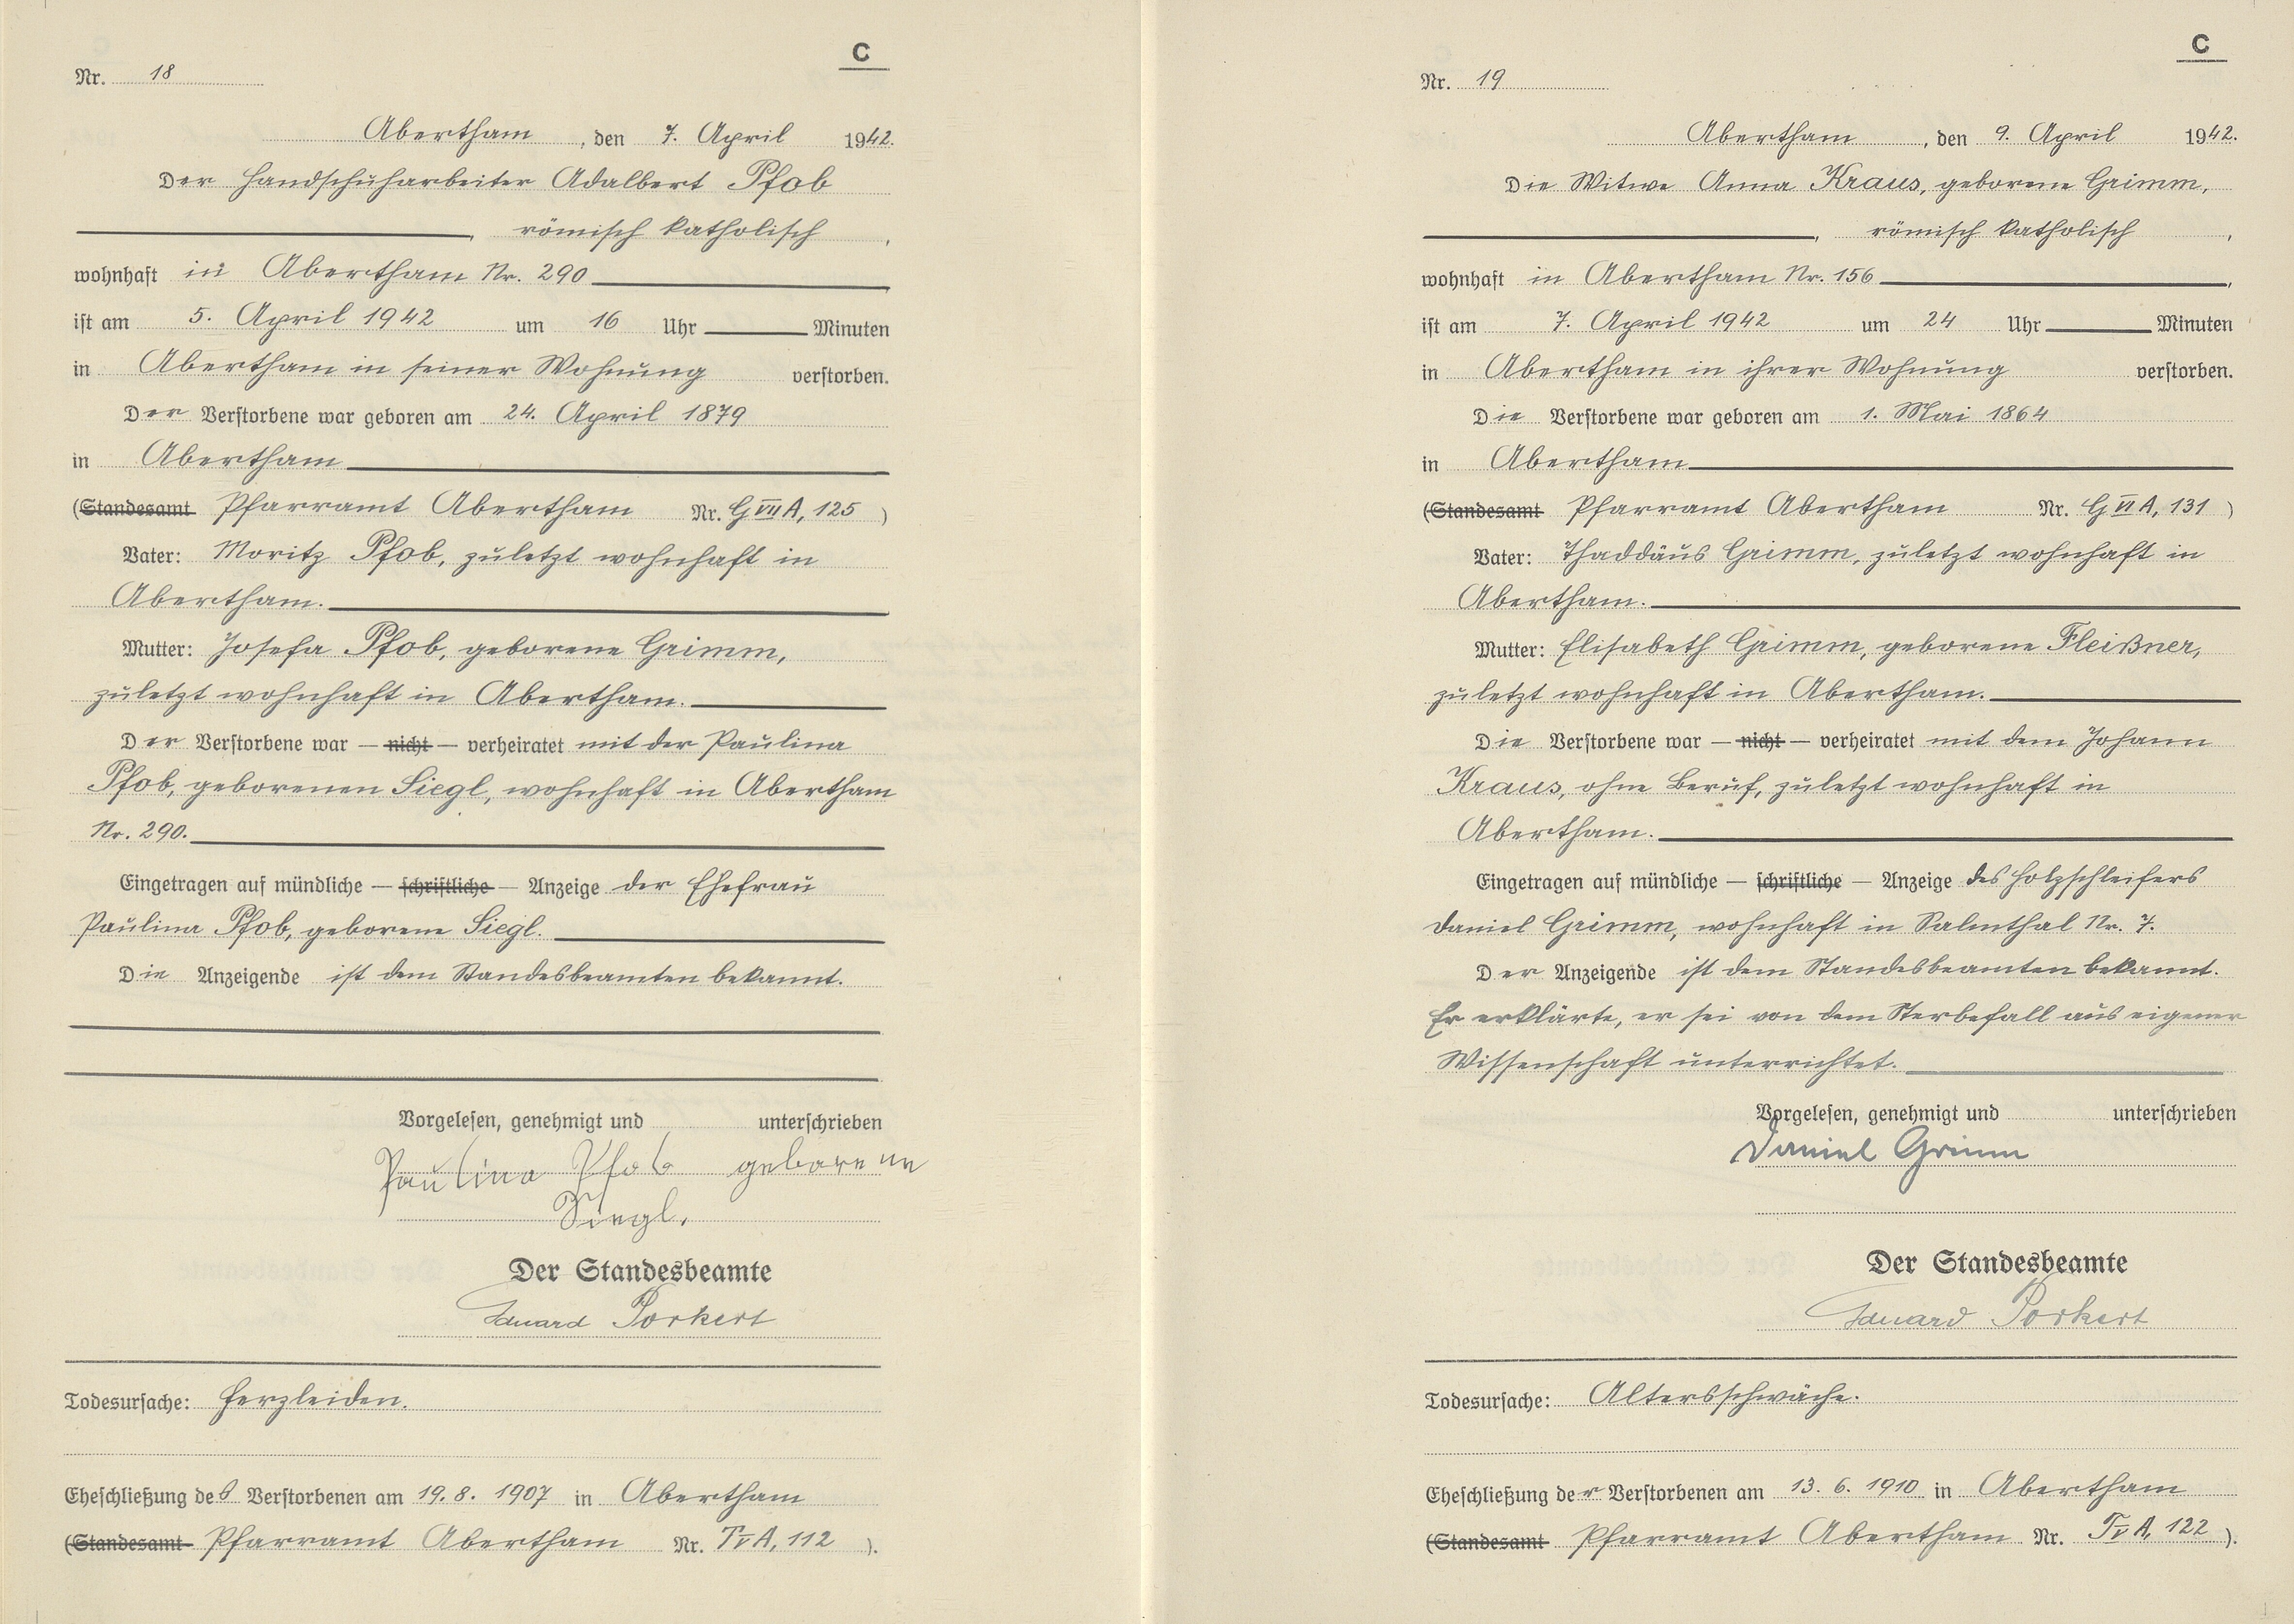 C
Nr. 18
Abertham, den 7. April 1942.
Der Handschuharbeiter Adalbert Pfob
, römisch katholisch,
wohnhaft in Abertham Nr. 290,
ist am 5. April 1942 um 16 Uhr Minuten
in Abertham in seiner Wohnung verstorben.
Der Verstorbene war geboren am 24. April 1879
in Abertham
(Standesamt Pfarramt Abertham Nr. G VII A, 125)
Vater: Moritz Pfob, zuletzt wohnhaft in
Abertham.
Mutter: Josefa Pfob, geborene Grimm,
zuletzt wohnhaft in Abertham.
Der Verstorbene war — nicht — verheiratet mit der Paulina
Pfob, geborenen Siegl, wohnhaft in Abertham
Nr. 290.
Eingetragen auf mündliche — schriftliche — Anzeige der Ehefrau
Paulina Pfob, geborene Siegl.
Die Anzeigende ist dem Standesbeamten bekannt.
Vorgelesen, genehmigt und unterschrieben
Paulina Pfob geborene
Siegl.
Der Standesbeamte
Eduard Porkert
Todesursache: Herzleiden.
Eheschließung des Verstorbenen am 19. 8. 1907 in Abertham
(Standesamt Pfarramt Abertham Nr. T V A, 112).
C
Nr. 19
Abertham, den 9. April 1942.
Die Witwe Anna Kraus, geborene Grimm,
, römisch katholisch,
wohnhaft in Abertham Nr. 156,
ist am 7. April 1942 um 24 Uhr Minuten
in Abertham in ihrer Wohnung verstorben.
Die Verstorbene war geboren am 1. Mai 1864
in Abertham
(Standesamt Pfarramt Abertham Nr. G VI A, 131)
Vater: Thaddäus Grimm, zuletzt wohnhaft in
Abertham.
Mutter: Elisabeth Grimm, geborene Fleißner,
zuletzt wohnhaft in Abertham.
Die Verstorbene war — nicht — verheiratet mit dem Johann
Kraus, ohne Beruf, zuletzt wohnhaft in
Abertham.
Eingetragen auf mündliche — schriftliche — Anzeige des Holzschleifers
Daniel Grimm, wohnhaft in Salmthal Nr. 7.
Der Anzeigende ist dem Standesbeamten bekannt.
Er erklärte, er sei von dem Sterbefall aus eigener
Wissenschaft unterrichtet.
Vorgelesen, genehmigt und unterschrieben
Daniel Grimm
Der Standesbeamte
Eduard Porkert
Todesursache: Altersschwäche.
Eheschließung der Verstorbenen am 13. 6. 1910 in Abertham
(Standesamt Pfarramt Abertham Nr. T V A, 122).